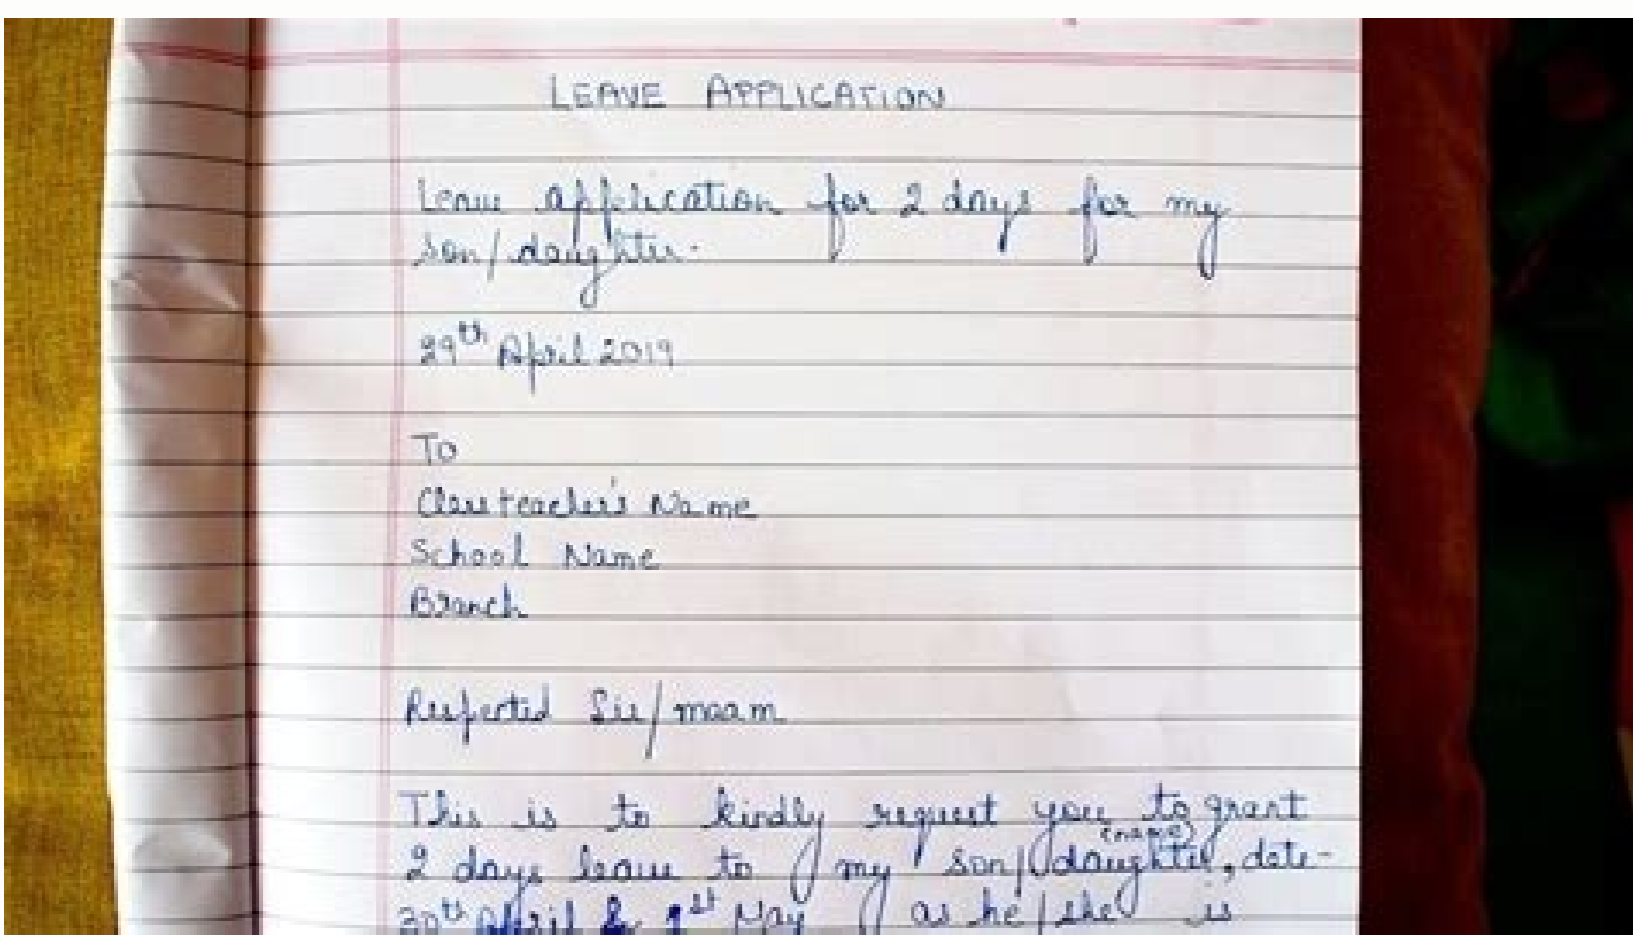 LEAVE APPLICATION
Leave application for 2 days for my
son/daughter.
29th April 2019
To
Class teacher's Name
School Name
Branch
Respected Sir/maam
This is to kindly request you to grant
(name)
2 days leave to my son/daughter, date-
30th April & 1st May as he/she is